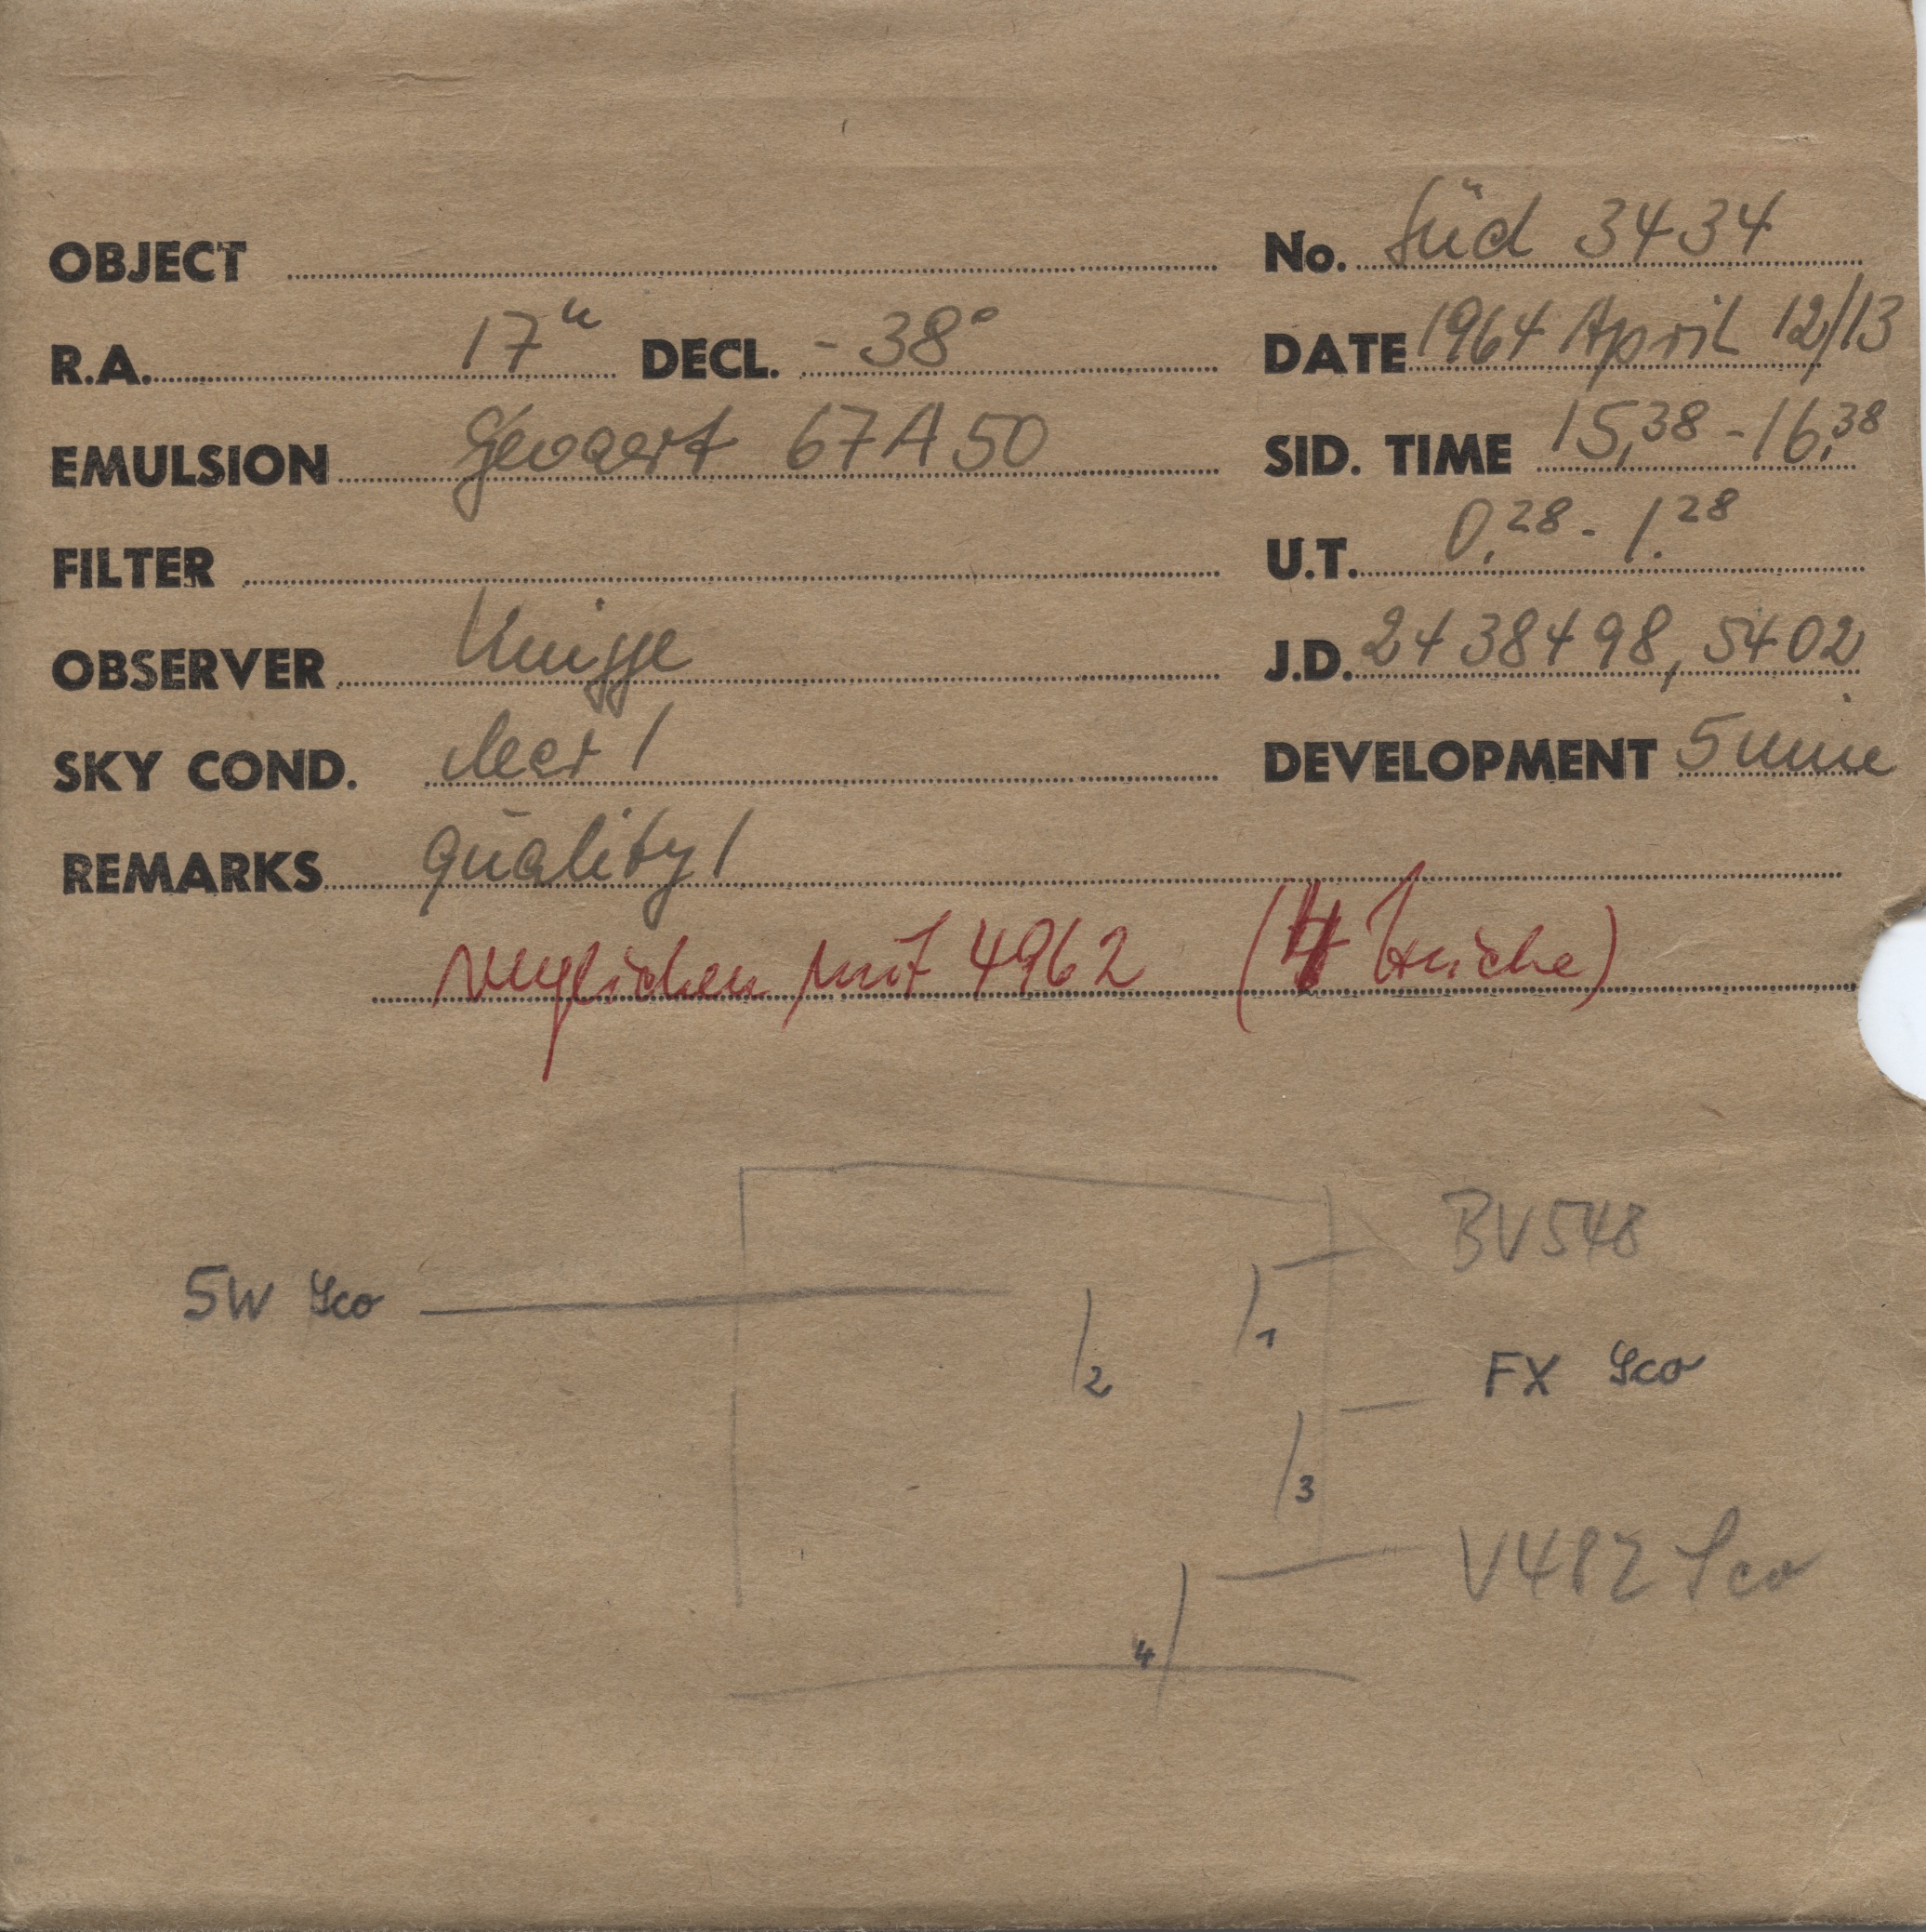 OBJECT No. Süd 3434
R.A. 17h DECL. -38° DATE 1964 April 12/13
EMULSION Gevaert 67A50 SID. TIME 15,38 - 16,38
FILTER U.T. 0.28 - 1.28
OBSERVER Knigge J.D. 2438498,5402
SKY COND. clear 1 DEVELOPMENT 5 min
REMARKS quality 1
verglichen mit 4962 (4 Striche)
BV548
SW Sco
1
2
FX Sco
3
V482 Sco
4